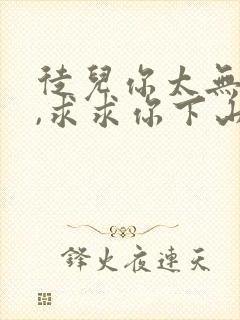 徒兒你太無
,求求你下山
鋒火夜連天